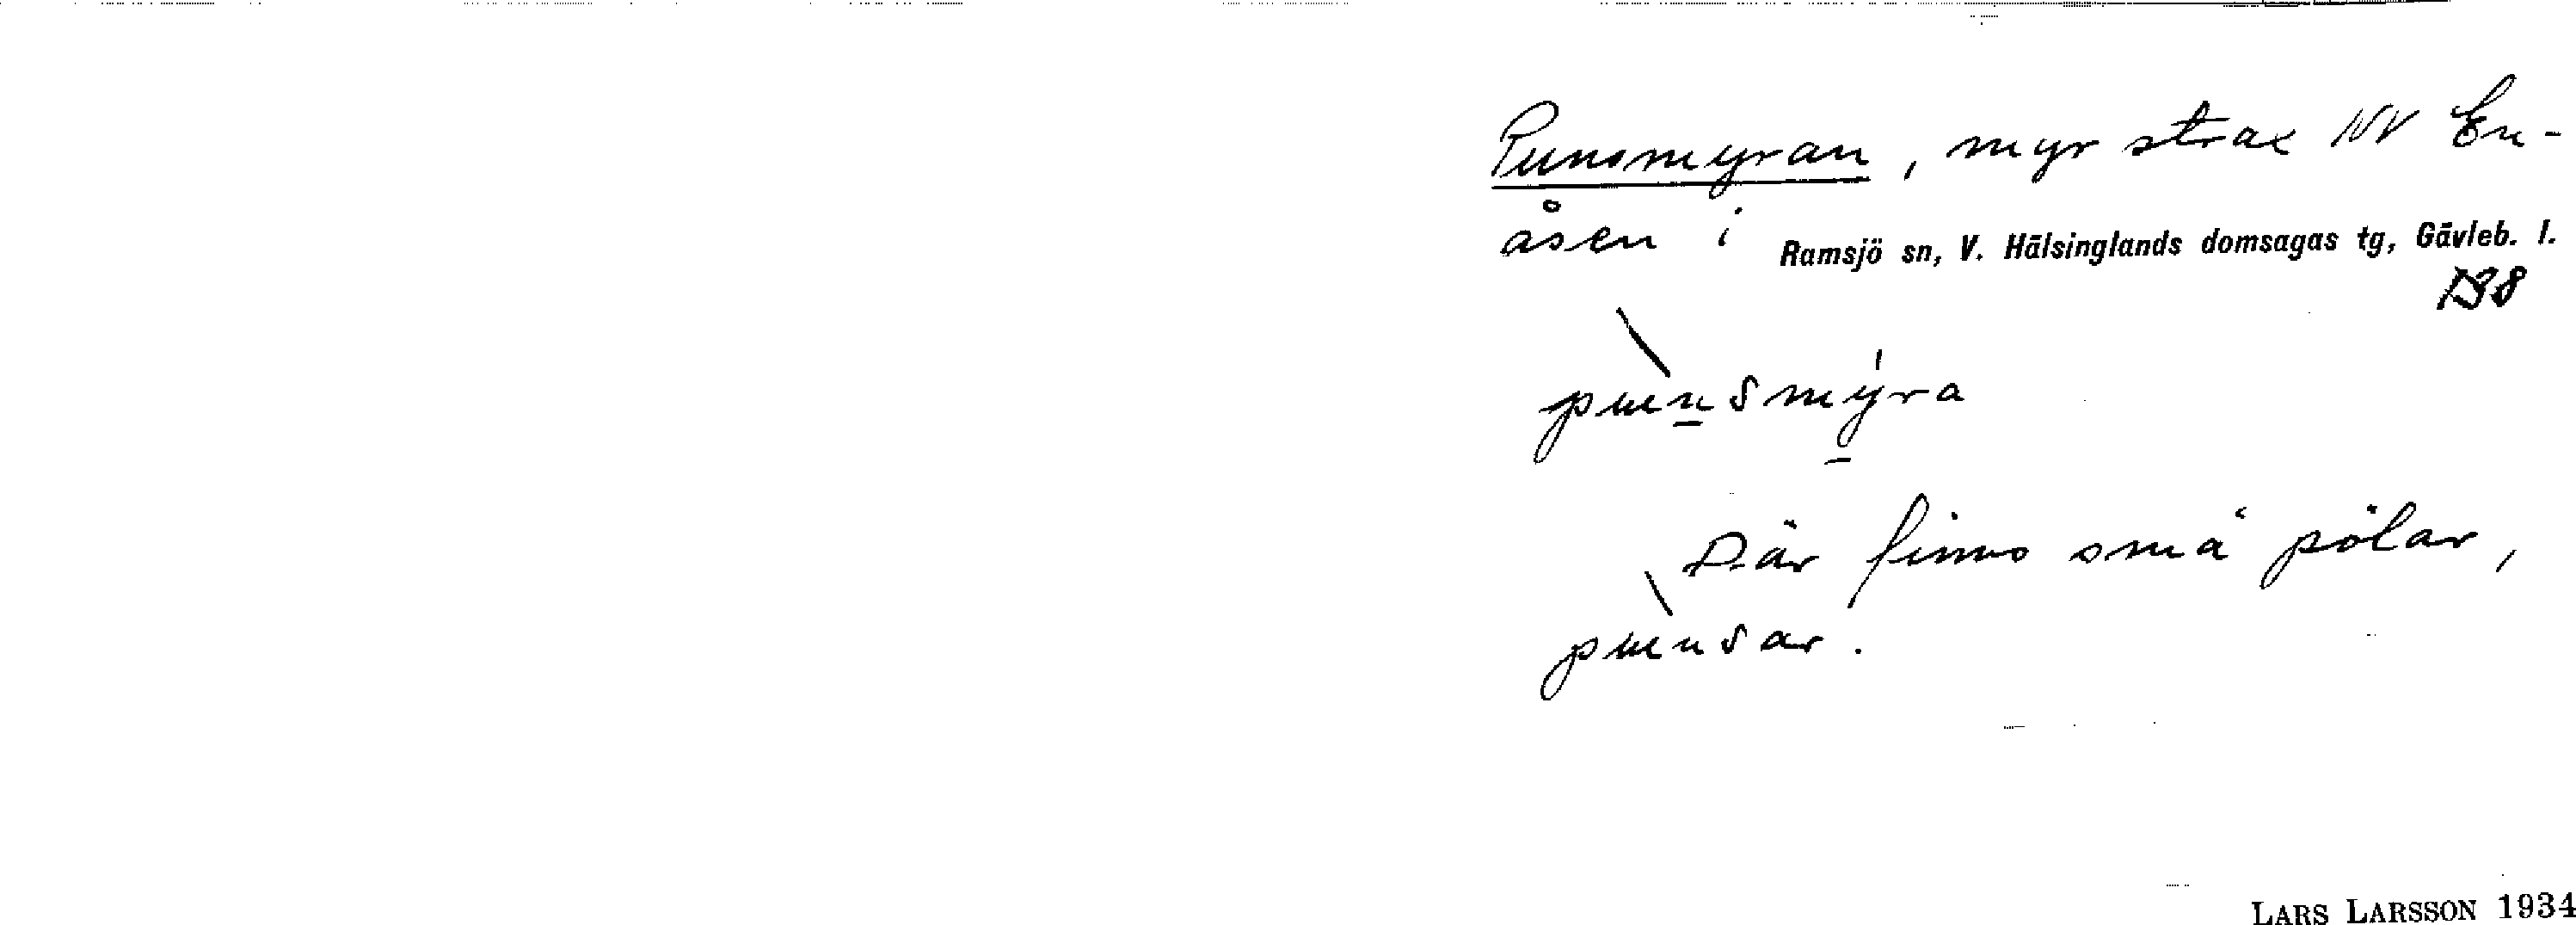 Punsmyran, myr strax NV En-
åsen i Ramsjö sn, V. Hälsinglands domsagas tg, Gävleb. l.
198
punsmýra
Där finns små pölar,
punsar.
LARS LARSSON 1934